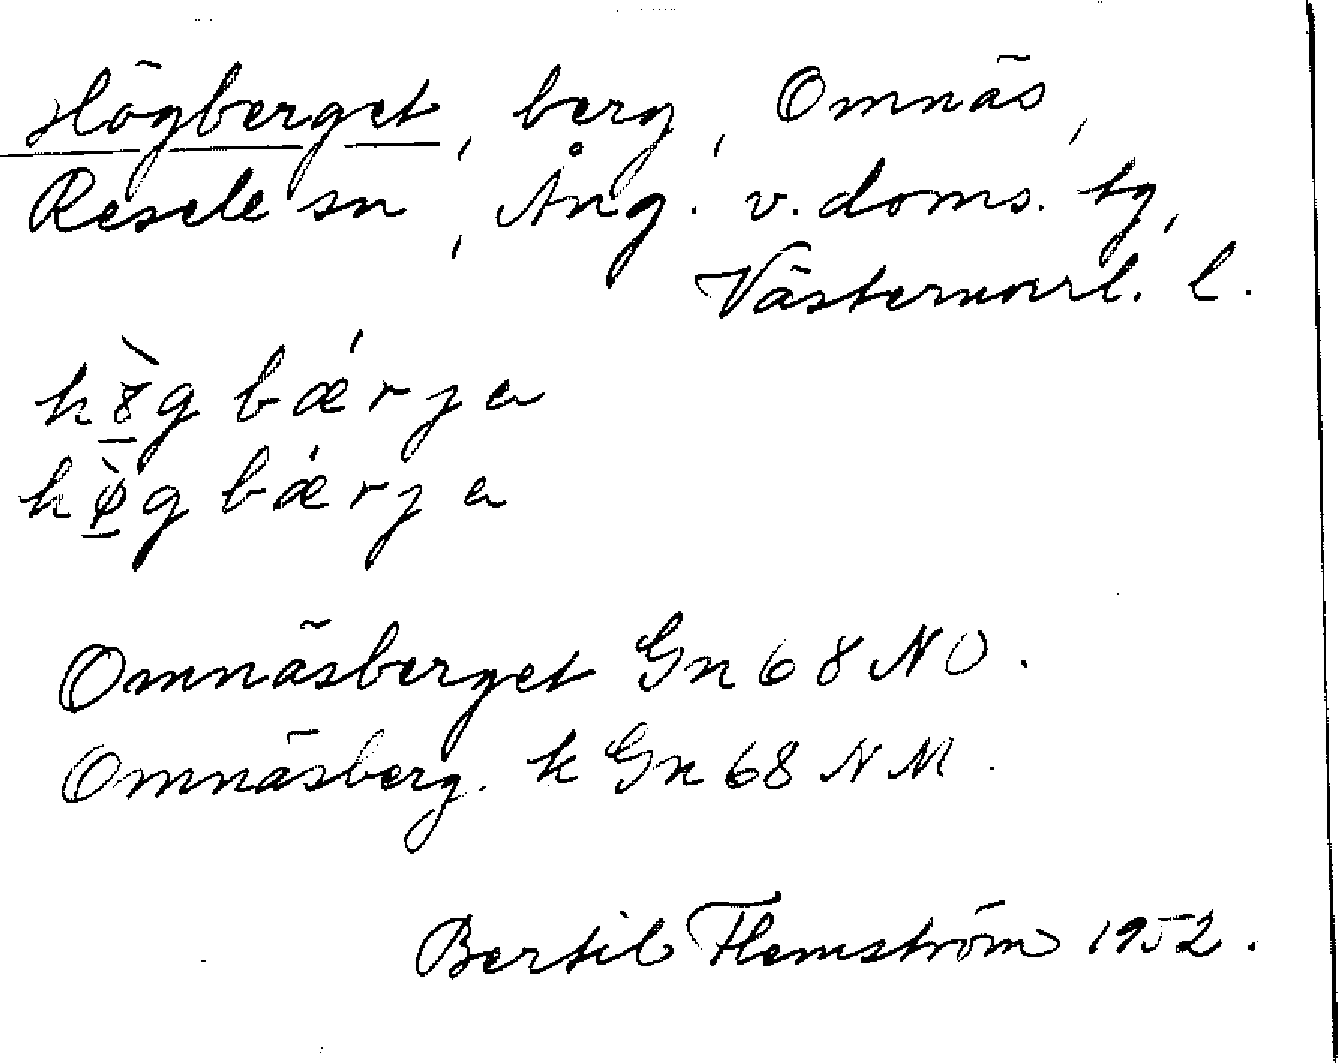 Högberget, berg, Omnäs,
Resele sn, Ång. v. doms. tg,
Västernorrl. l.
hȣ̲̀g bǽrja
hø̲̀g bǽrja
Omnäsberget Gn 68 NO.
Omnäsberg. k Gn 68 NM.
Bertil Flemström 1952.